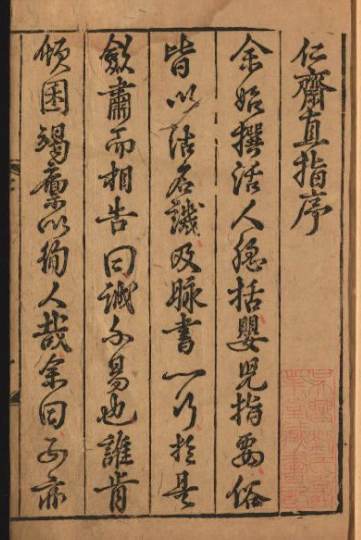 仁齋直指序
余始撰活人總括嬰兒指要俗
皆以沽名譏及脉書一行於是
斂肅而相告曰誠不易也誰肯
傾囷竭廩以徇人哉余曰不亦